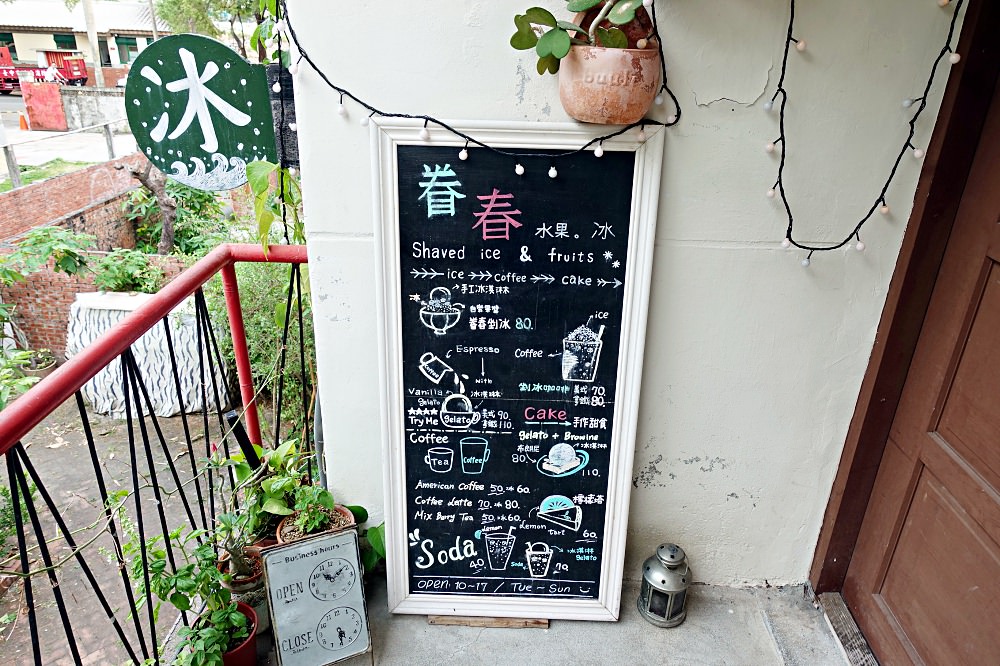 冰
眷春
水果。冰
Shaved ice & fruits
ice Coffee cake
手工冰淇淋
眷春剉冰 80.
ice
Espresso
Coffee
Coffee
with
Vanilla gelato
冰淇淋
剉冰咖啡
美式 70.
拿鐵 80.
Try Me
gelato
美式 90.
拿鐵 110.
Cake
手作甜食
Coffee
gelato + Browine
布朗尼
冰淇淋
80.
110.
Tea
Coffee
American Coffee 50. 冰 60.
Coffee Latte 70. 冰 80.
Mix Berry Tea 50. 冰 60.
檸檬塔
Lemon tart
60.
Soda
Lemon
40.
Soda
冰淇淋
gelato
70.
open: 10~17 / Tue ~ Sun
Business hours
OPEN
CLOSE